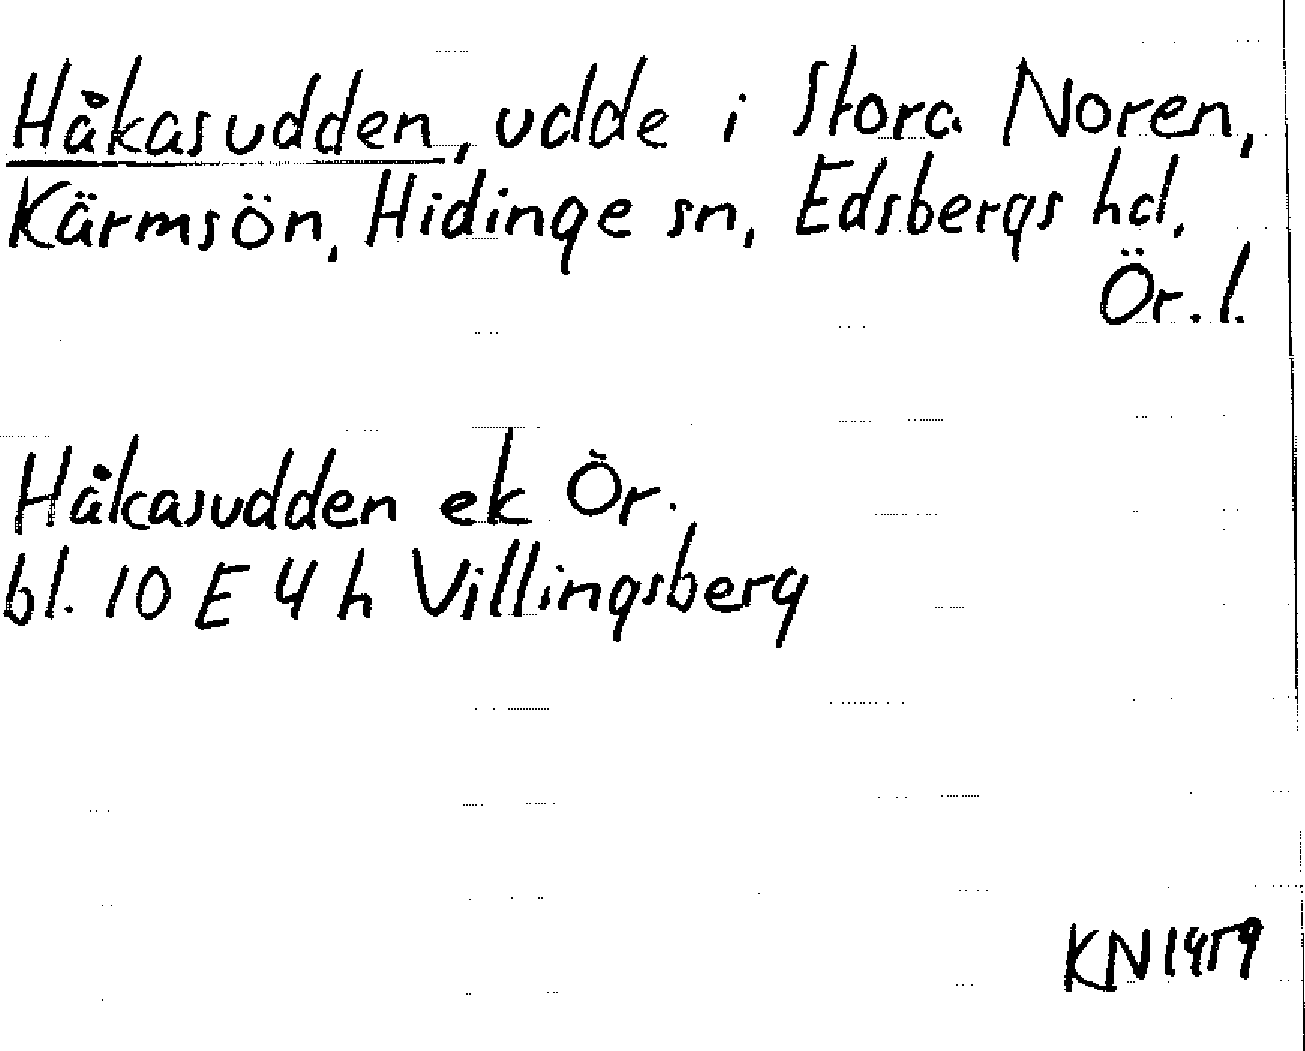 Håkasudden, udde i Stora Noren,
Kärmsön, Hidinge sn, Edsbergs hd,
Ör. l.
Håkasudden ek Ör.
bl. 10 E 4 h Villingsberg
KN1459